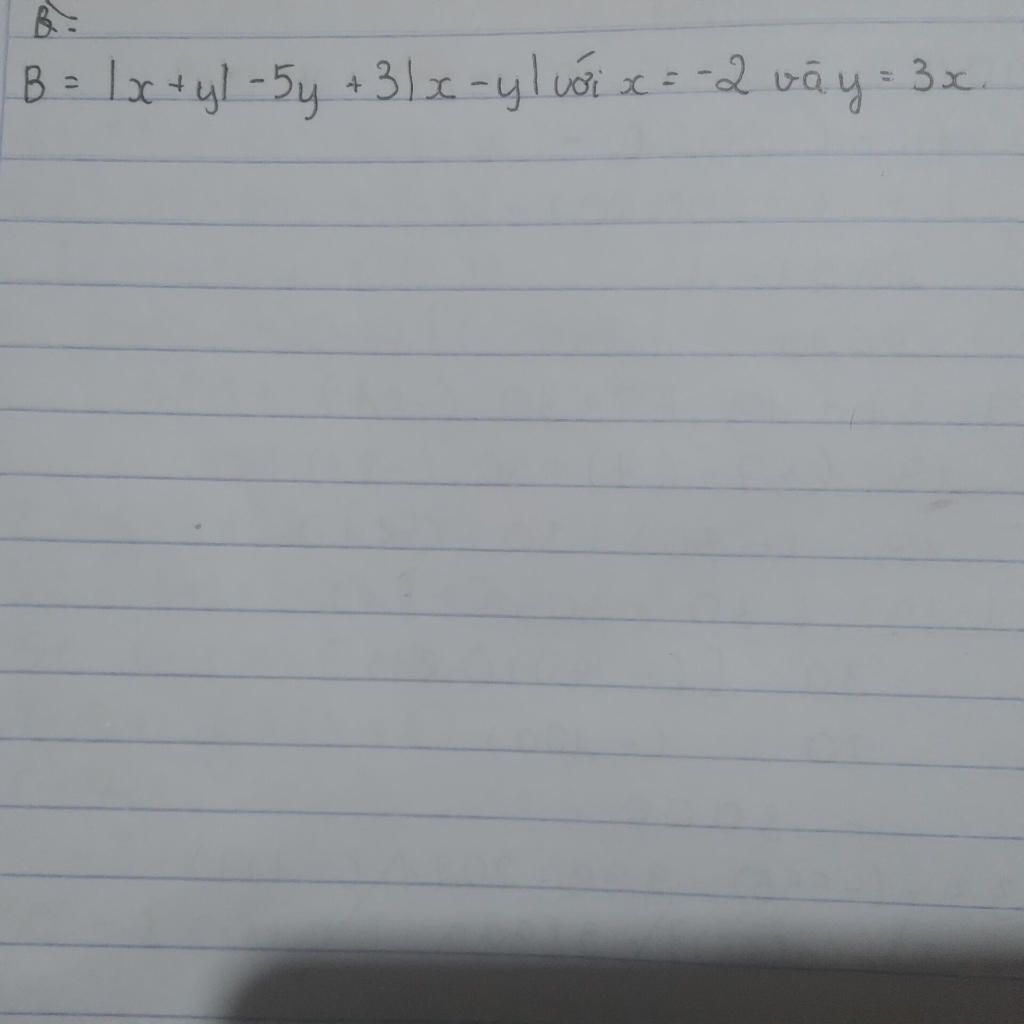 B =
B = |x + y| - 5y + 3|x - y| với x = -2 và y = 3x.